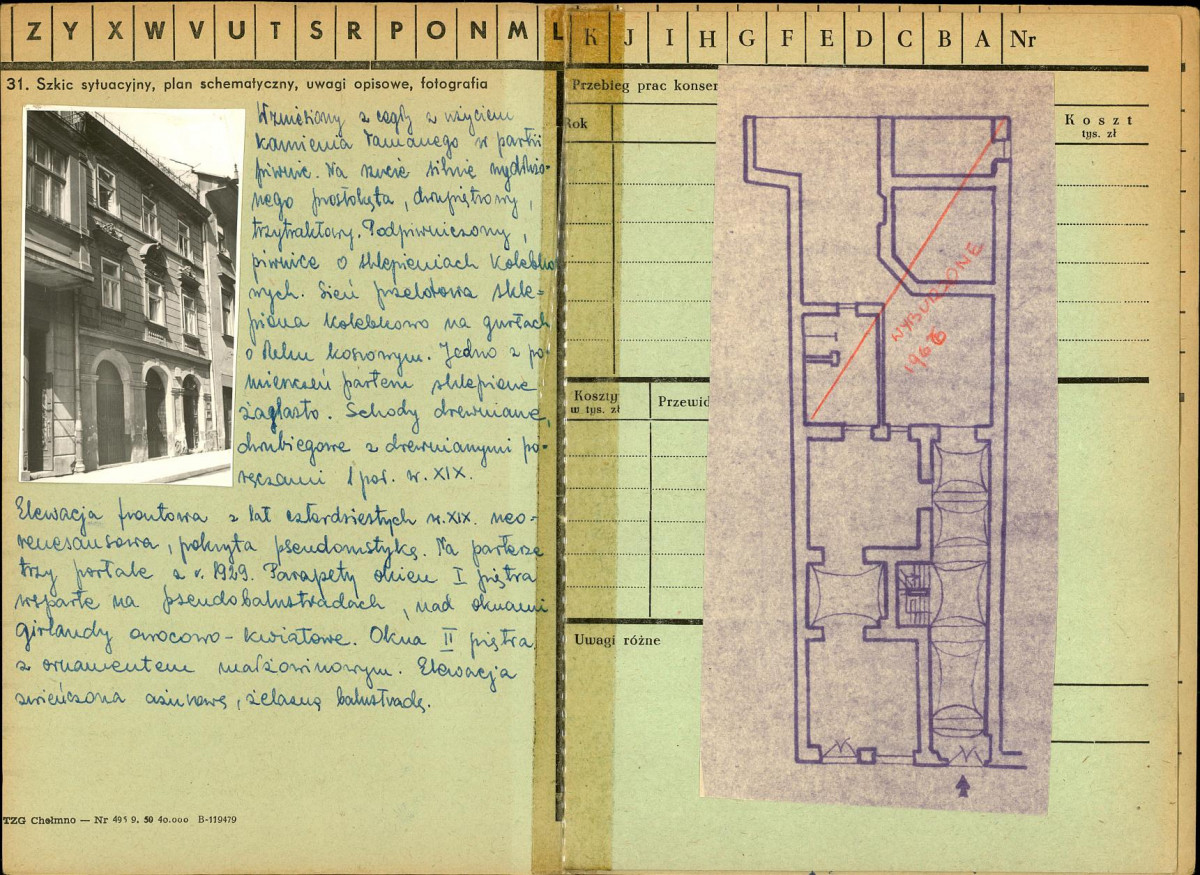 Z Y X W V U T S R P O N M L K J I H G F E D C B A Nr
31. Szkic sytuacyjny, plan schematyczny, uwagi opisowe, fotografia
Wzniesiony z cegły z użyciem
kamienia łamanego w partii
piwnic. Na rzucie silnie wydłużo-
nego prostokąta, dwupiętrowy,
trzytraktowy. Podpiwniczony,
piwnice o sklepieniach kolebko
wych. Sień przelotowa skle-
piona kolebkowo na gurtach
o łęku koszowym. Jedno z po-
mieszczeń parteru sklepione
żaglasto. Schody drewniane,
dwubiegowe z drewnianymi po-
ręczami I poł. w. XIX.
Elewacja frontowa z lat czterdziestych w. XIX. neo-
renesansowa, pokryta pseudorustyką. Na parterze
trzy portale z r. 1929. Parapety okien I piętra
wsparte na pseudobalustradach, nad oknami
girlandy owocowo-kwiatowe. Okna II piętra
z ornamentem małżowinowym. Elewacja
zwieńczona ażurową, żelazną balustradą.
TZG Chełmno — Nr 495 9. 50 40.000 B-119479
Przebieg prac konser
Rok
Koszt
tys. zł
Koszty
w tys. zł
Przewid
Uwagi różne
WYBURZONE
1966